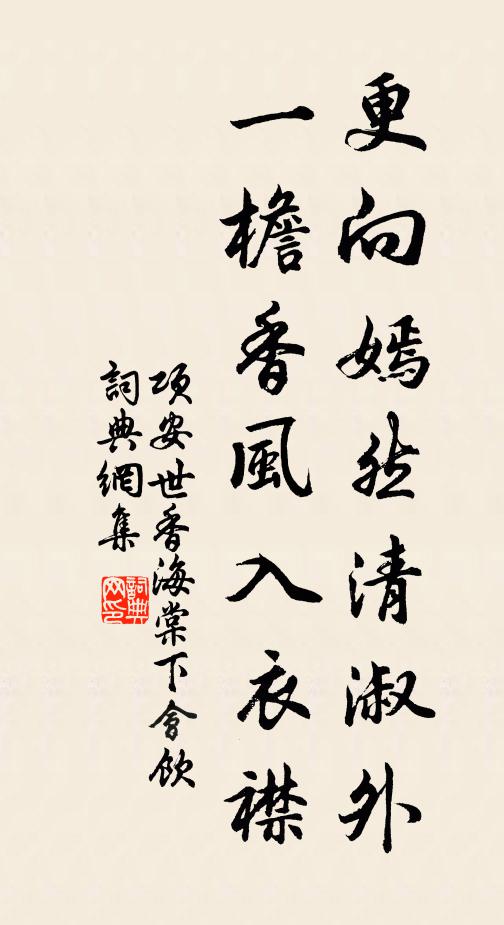 更向嫣然清淑外
一檐香風入衣襟
項安世香海棠下會飲
詞典網集
詞典網印